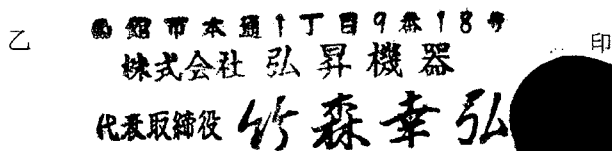 乙 函館市本通1丁目9番18号 印
株式会社 弘昇機器
代表取締役 竹森幸弘